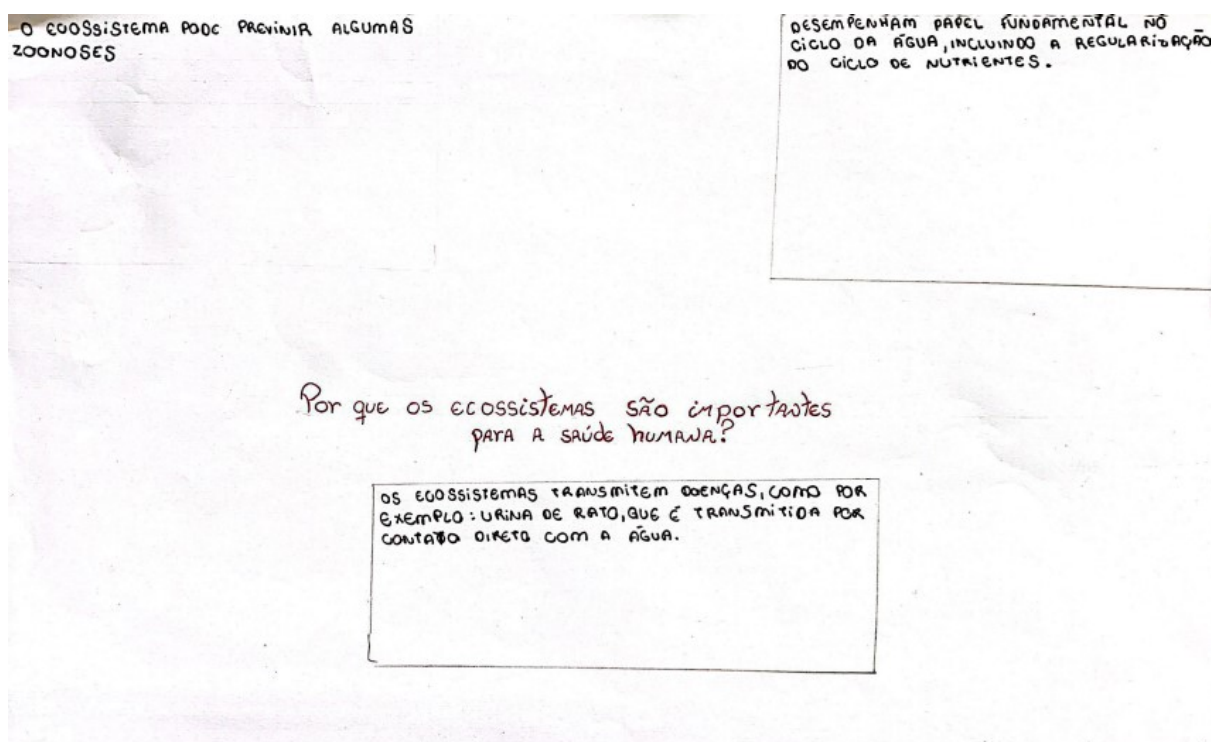 O ECOSSISTEMA PODE PREVINIR ALGUMAS
ZOONOSES
DESEMPENHAM PAPEL FUNDAMENTAL NO
CICLO DA ÁGUA, INCLUINDO A REGULARIZAÇÃO
DO CICLO DE NUTRIENTES.
Por que os ecossistemas são importantes
para a saúde humana?
OS ECOSSISTEMAS TRANSMITEM DOENÇAS, COMO POR
EXEMPLO: URINA DE RATO, QUE É TRANSMITIDA POR
CONTATO DIRETO COM A ÁGUA.